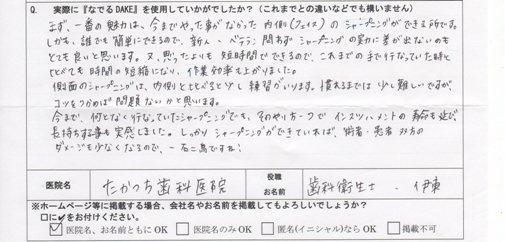 Q. 実際に『なでるDAKE』を使用していかがでしたか？（これまでとの違いなどでも構いません）
まず、一番の魅力は、今までやった事がなかった内側(フェイス)のシャープニングができる所です。
しかも、誰でも簡単にできるので、新人・ベテラン問わずシャープニングの実力に差が出ないのも
とても良いと思います。又、思ったよりも短時間でできるので、これまでの手で行なっていた時と
とべても時間の短縮になり、作業効率も上がりました。
側面のシャープニングは、内側とくらべると少し練習がいります。慣れるまでは少し難しいですが、
コツをつかめば問題ないかと思います。
今まで、何となく行なっていたシャープニングでも、そのやり方一つでインスツルメントの寿命も延び、
長持ちする事も実感しました。しっかりシャープニングができていれば、術者・患者双方の
ダメージも少なくなるので、一石二鳥ですね！
医院名 たかつち歯科医院 役職 お名前 歯科衛生士・伊東
※ホームページ等に掲載する場合、会社名やお名前を掲載してもよろしいでしょうか？
口に✓をお付けください。
☑医院名、お名前ともにOK □医院名のみOK □匿名(イニシャル)ならOK □掲載不可